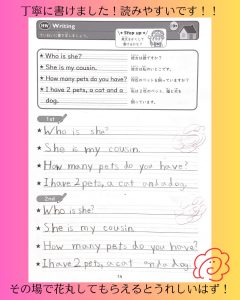 丁寧に書けました！読みやすいです！！
HW Writing
Step up
Who is she?
She is my cousin.
How many pets do you have?
I have 2 pets, a cat and a
dog.
1st
Who is she?
She is my cousin.
How many pets do you have?
I have 2 pets, a cat and a dog.
2nd
Who is she?
She is my cousin.
How many pets do you have?
I have 2 pets, a cat and a dog.
その場で花丸してもらえるとうれしいはず！